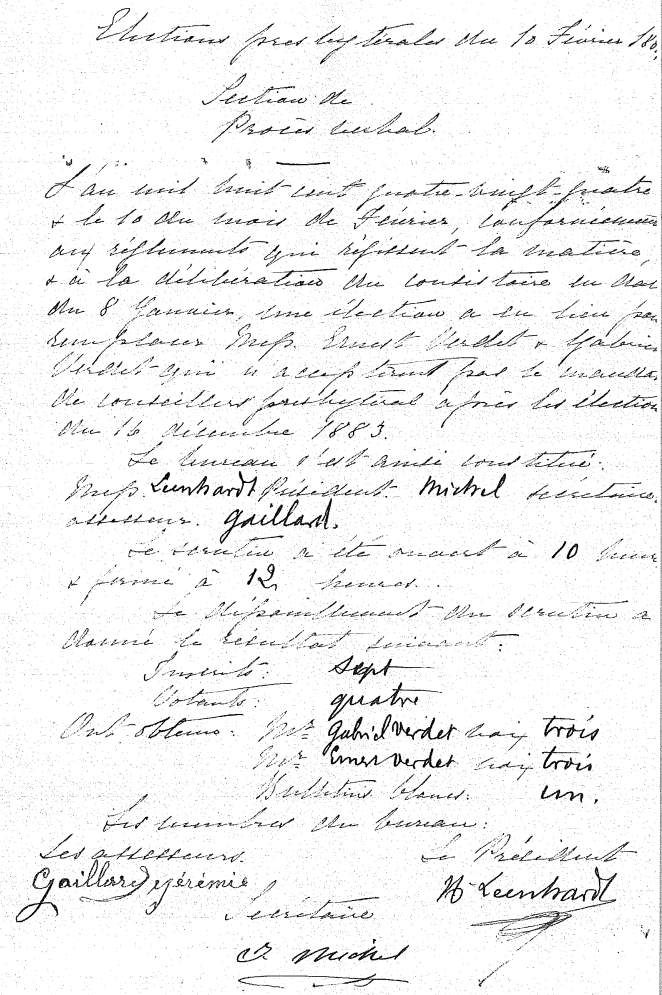 Elections presbytérales du 10 Février 188
Section de
Procès verbal.
L'an mil huit cent quatre-vingt-quatre
& le 10 du mois de Février, conformément
aux réglements qui régissent la matière,
& à la délibération du consistoire en dat
du 8 Janvier, une élection a eu lieu pour
remplacer Mess. Ernest Verdet & Gabriel
Verdet qui n'acceptèrent pas le mandat
de conseillers presbytéral après les élections
du 16 décembre 1883.
Le bureau s'est ainsi constitué:
Mess Leenhardt Président Michel secrétaire
assesseur. Gaillard.
Le scrutin a été ouvert à 10 heures
& fermé à 12 heures.
Le dépouillement du scrutin a
donné le résultat suivant:
Inscrits: sept
Votants: quatre
Ont obtenu: Mr Gabriel Verdet voix trois
Mr Ernest Verdet voix trois
Bulletins blancs: un.
Les membres du bureau:
Les assesseurs. Le Président
Gaillard Jérémie H Leenhardt
Secrétaire
J Michel